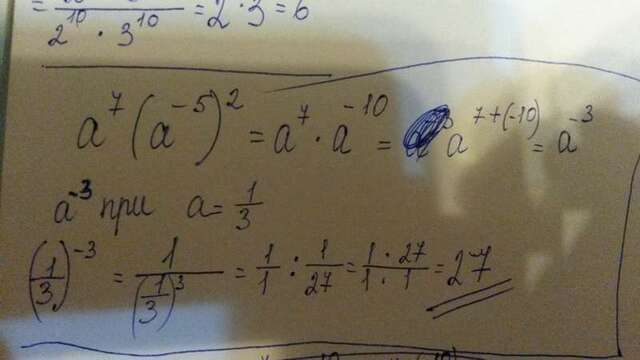 = 2^10 · 3^10 = 2 · 3 = 6
a^7 (a^-5)^2 = a^7 · a^-10 = a^7+(-10) = a^-3
a^-3 при a = 1/3
(1/3)^-3 = 1/(1/3)^3 = 1/1 : 1/27 = 1 · 27/1 · 1 = 27